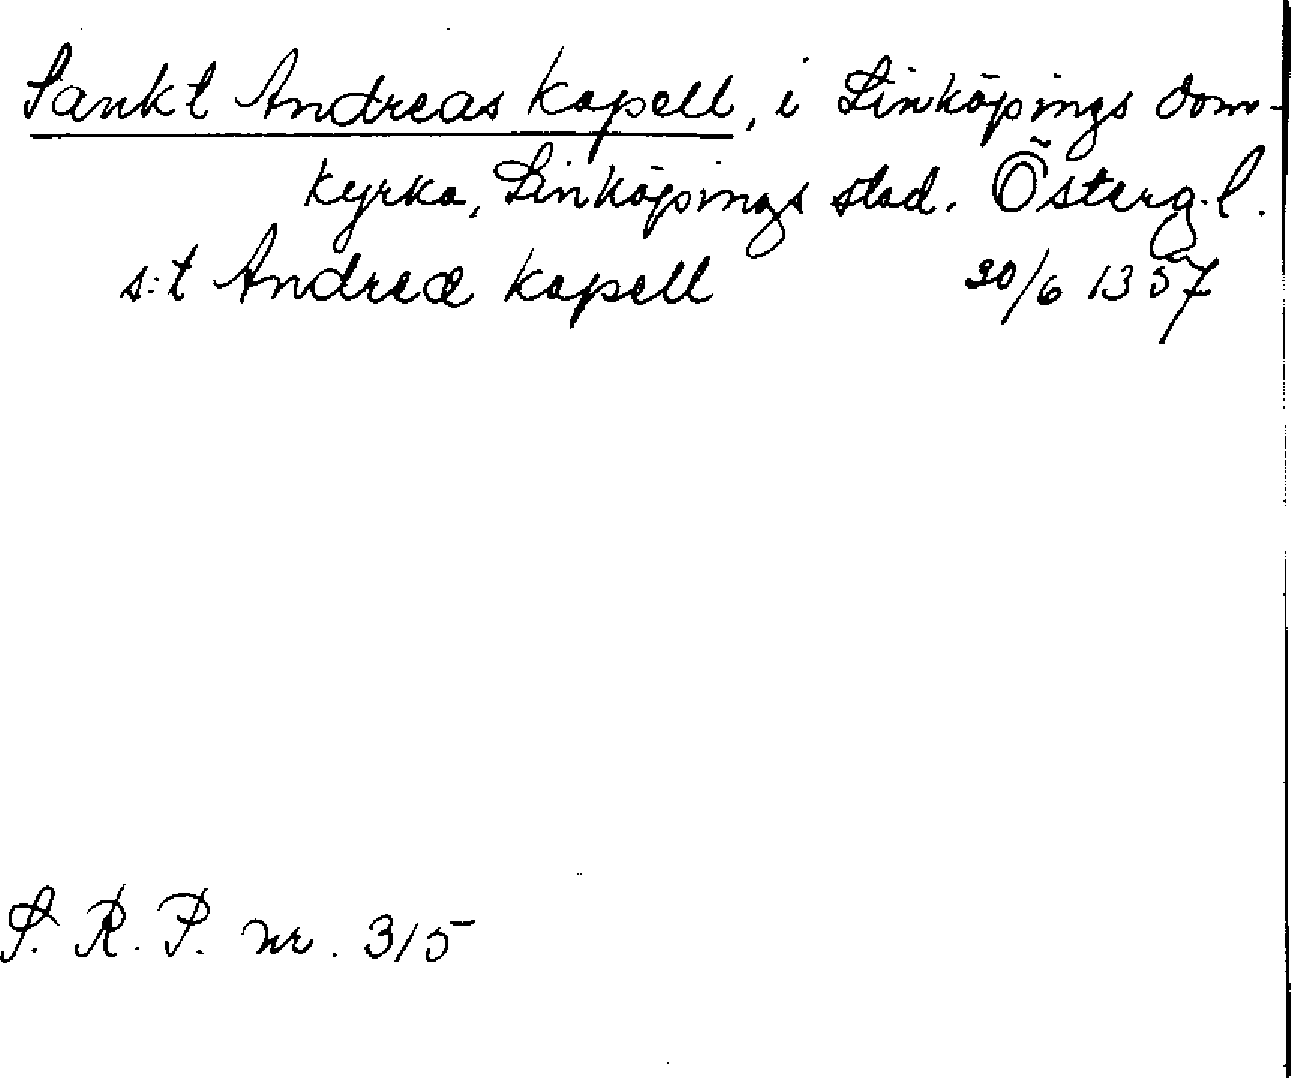 Sankt Andreas kapell, i Linköpings dom-
kyrka, Linköpings stad. Österg.l.
s:t Andreæ kapell 20/6 1357
S. R. P. nr. 315